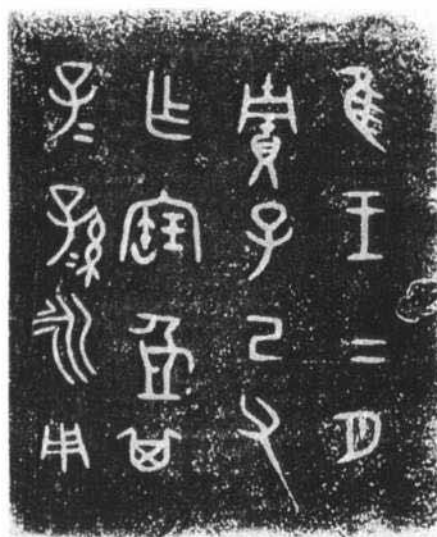 隹王二月
賈子己父
乍寶盂其
子₌孫₌永用